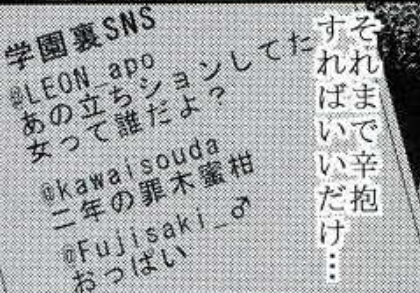 それまで辛抱
すればいいだけ…
学園裏SNS
@LEON_apo
あの立ちションしてた
女って誰だよ?
@kawaisouda
二年の罪木蜜柑
@Fujisaki_♂
おっぱい